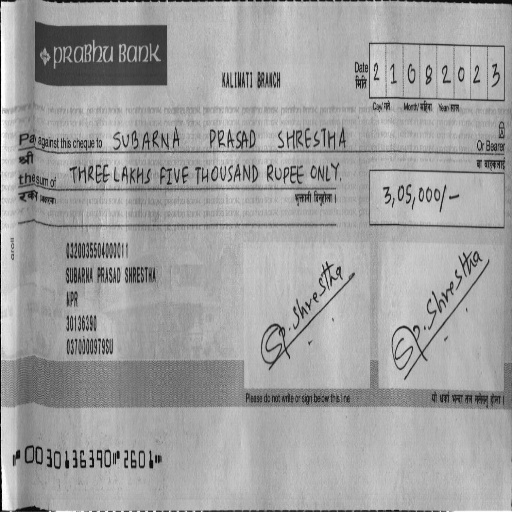 PRABHU BANK
KALIMATI BRANCH
Date 2 1 0 8 2 0 2 3
मिति
Day/गते Month/महिना Year/साल
Pay against this cheque to SUBARNA PRASAD SHRESTHA Or Bearer
श्री वा वाहकलाई
the sum of THREE LAKHS FIVE THOUSAND RUPEE ONLY. 3,05,000/-
भुक्तानी दिनुहोला ।
0320035504000011
SUBARNA PRASAD SHRESTHA
NPR
30136390
0370000979SU
Sp. Shrestha Sp. Shrestha
Please do not write or sign below this line
0030136390 2601